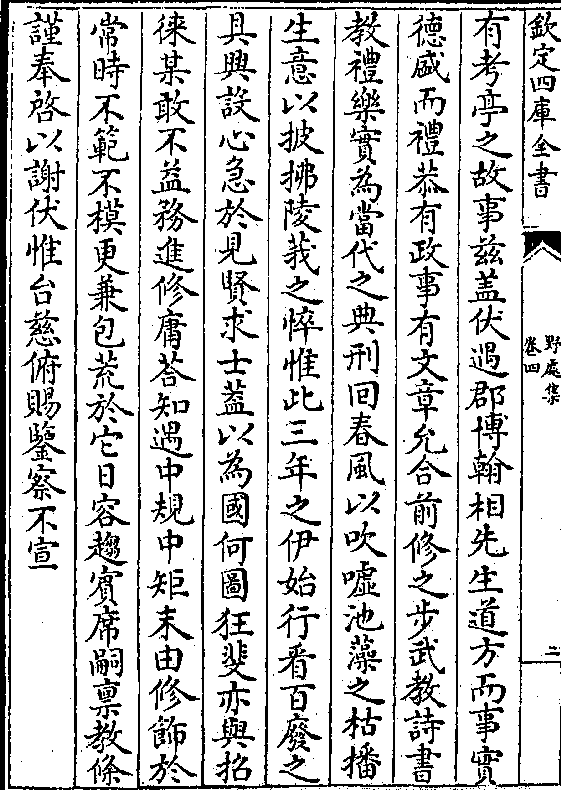 欽定四庫全書
野處集
卷四
二
有考亭之故事兹蓋伏遇郡博翰相先生道方而事實
德盛而禮恭有政事有文章允合前修之步武教詩書
教禮樂實為當代之典刑回春風以吹噓池藻之枯播
生意以披拂陵莪之悴惟此三年之伊始行看百廢之
具興設心急於見賢求士蓋以為國何圖狂斐亦與招
徠某敢不益務進修庸荅知遇中規中矩末由修飾於
常時不範不模更兼包荒於它日容趨賓席嗣稟教條
謹奉啓以謝伏惟台慈俯賜鑒察不宣